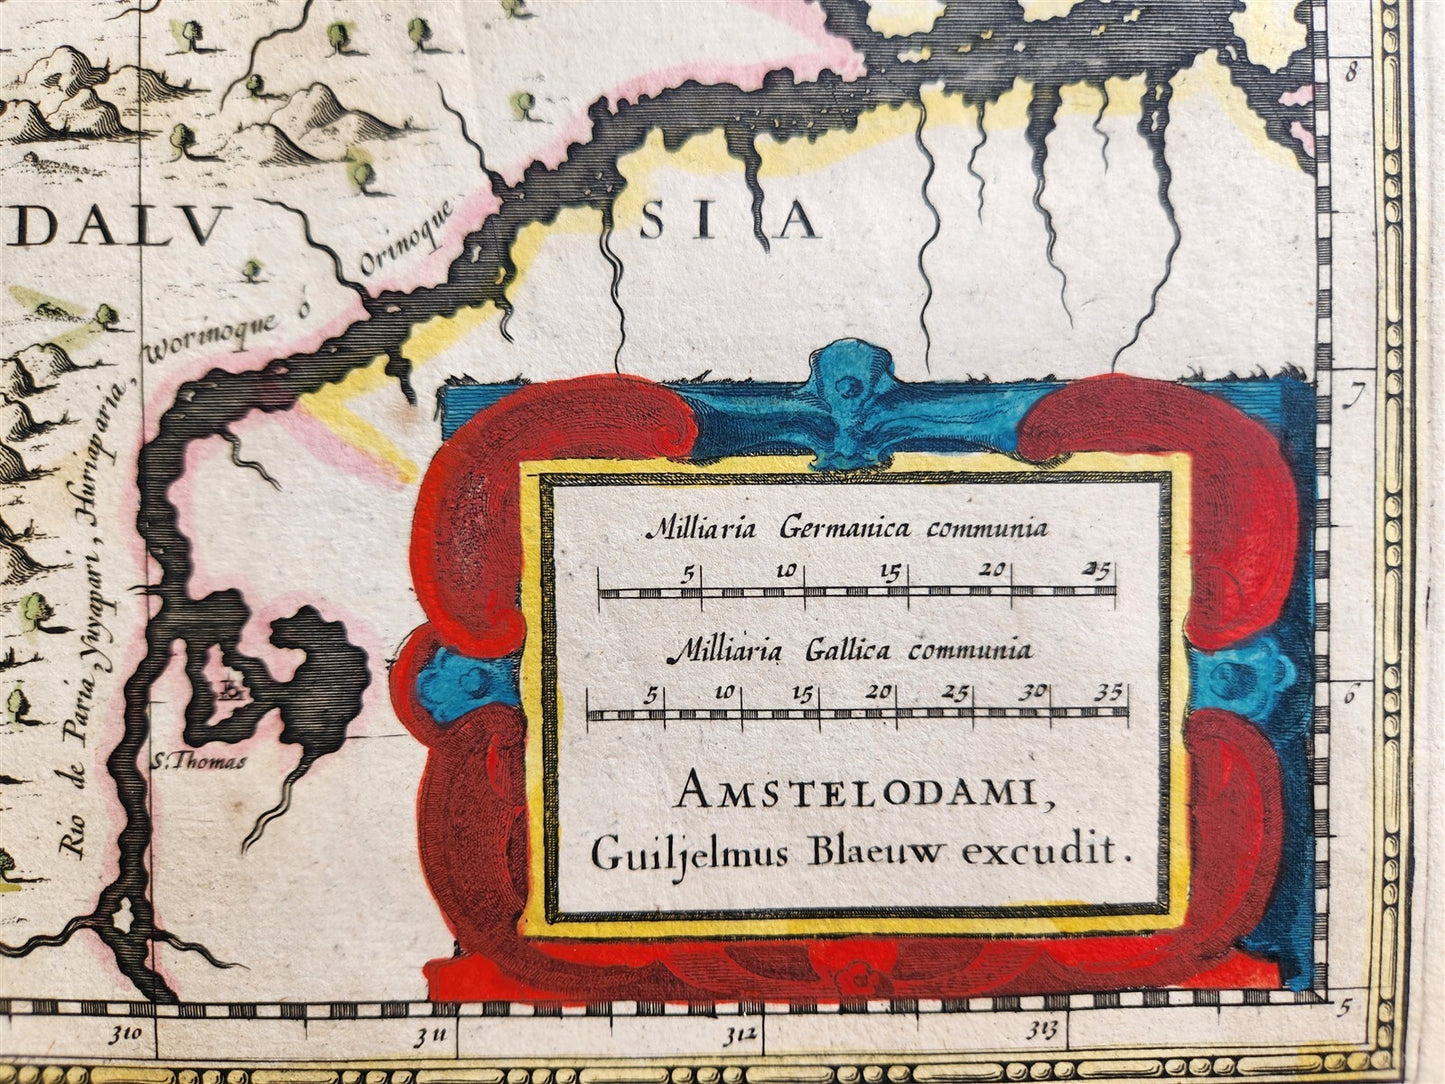 DALV
SIA
Orinoque
Worinoque ó
Rio de Paria, Yuyapari, Huriaparia,
S. Thomas
Milliaria Germanica communia
5 10 15 20 25
Milliaria Gallica communia
5 10 15 20 25 30 35
AMSTELODAMI,
Guiljelmus Blaeuw excudit.
8
7
6
5
310 311 312 313